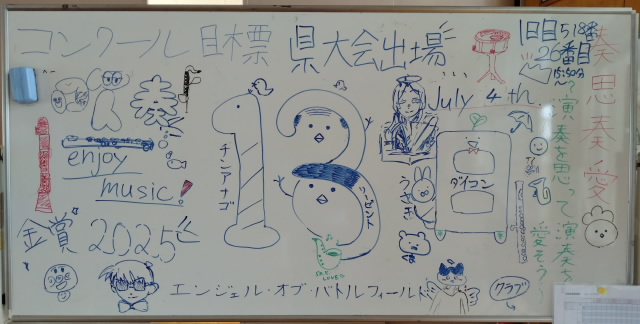 コンクール目標 県大会出場
1日目518番
26番目
15:50分
~
奏思奏愛
?演奏を思って演奏を愛そう~
July 4th
enjoy
music!
金賞2025
チンアナゴ
13
うさぎ
ダイコン
SAX LOVER
エンジェル・オブ・バトルフィールド
クラブ